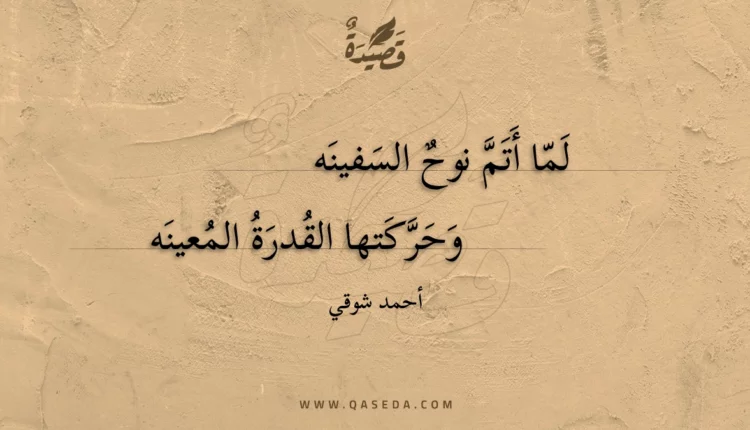 قَصِيْدَةٌ
لَمّا أَتَمَّ نوحٌ السَفينَه
وَحَرَّكَتها القُدرَةُ المُعينَه
أحمد شوقي
WWW.QASEDA.COM